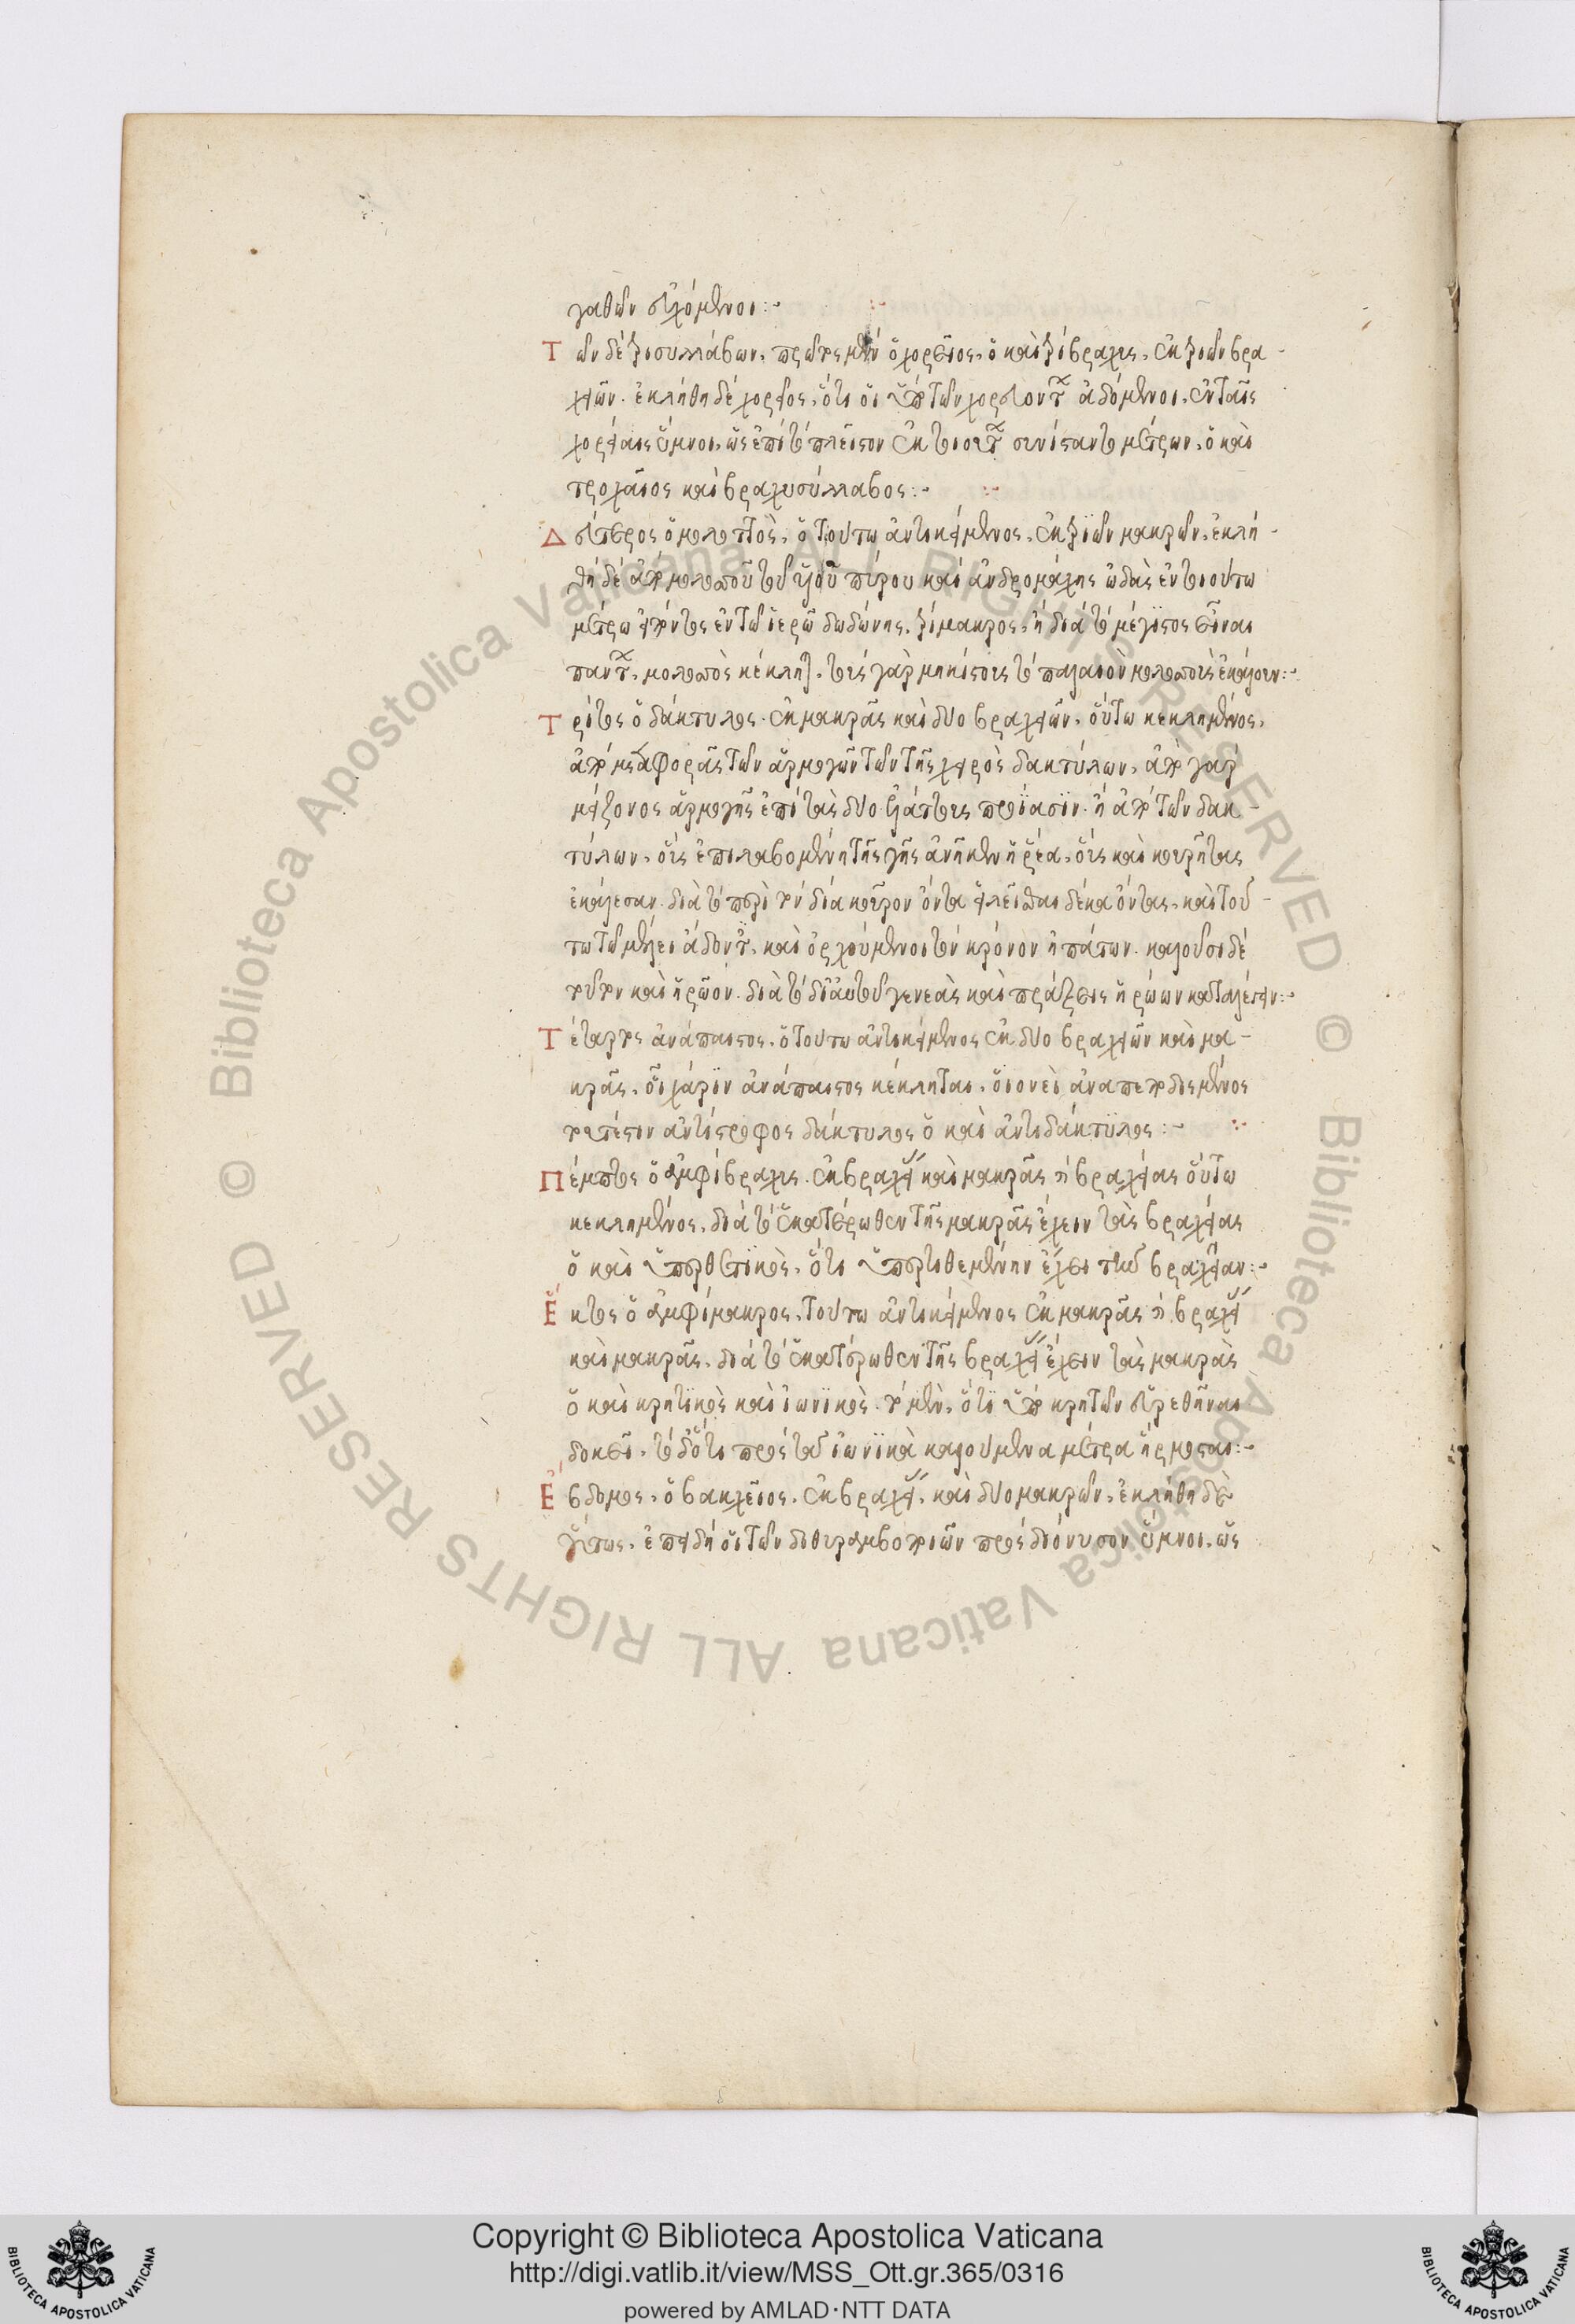 γαθῶν εὐχόμενοι:~
Τῶν δὲ τρισυλλάβων, πρῶτος μὲν ὁ χορεῖος, ὁ καὶ τρίβραχυς, ἐκ τριῶν βρα-
χειῶν. ἐκλήθη δὲ χορεῖος, ὅτι οἱ ὑπὸ τῶν χορευόντων ἀδόμενοι, ἐν ταῖς
χορείαις ὕμνοι, ὡς ἐπὶ τὸ πλεῖστον ἐκ τοιούτων συνίσταντο μέτρων, ὁ καὶ
τροχαῖος καὶ βραχυσύλλαβος:~
Δεύτερος ὁ μολοττὸς, ὁ τούτω ἀντικείμενος, ἐκ τριῶν μακρῶν, ἐκλή-
θη δὲ ἀπὸ μολοττοῦ τοῦ υἱοῦ πύρου καὶ ἀνδρομάχης ὠδὰς ἐν τοιούτω
μέτρω εἰπόντος ἐν τῶ ἱερῶ δωδώνης, τρίμακρος, ἢ διὰ τὸ μέγιστος εἶναι
πάντων, μολοττὸς κέκληται, τοὺς γὰρ μηκίστους τὸ παλαιὸν μολοττοὺς ἐκάλουν:~
Τρίτος ὁ δάκτυλος. ἐκ μακρᾶς καὶ δύο βραχειῶν, οὕτω κεκλημένος,
ἀπὸ μεταφορᾶς τῶν ἁρμογῶν τῶν τῆς χειρὸς δακτύλων, ἀπὸ γὰρ
μείζονος ἁρμογῆς ἐπὶ τὰς δύο ἐλάττους προΐασιν. ἢ ἀπὸ τῶν δακ-
τύλων, οὓς ἐπιλαβομένη τῆς γῆς ἀνῆκεν ἡ ῥέα, οὓς καὶ κουρῆτας
ἐκάλεσαν. διὰ τὸ περὶ τὸν δία κοῦρον ὄντα εἰλεῖσθαι δέκα ὄντας, καὶ τού-
τω τῶ μέλει ἄδοντες, καὶ ὀρχούμενοι τὸν κρόνον ἠπάτων. καλοῦσι δὲ
τοῦτον καὶ ἡρῶον. διὰ τὸ δι' αὐτοῦ γενεὰς καὶ πράξεις ἡρώων καταλέγειν:~
Τέταρτος ἀνάπαιστος, ὁ τούτω ἀντικείμενος ἐκ δύο βραχειῶν καὶ μα-
κρᾶς, οὗ χάριν ἀνάπαιστος κέκληται, οἱονεὶ ἀναπεποδισμένος
τουτέστιν ἀντίστροφος δάκτυλος ὁ καὶ ἀντιδάκτυλος:~
Πέμπτος ὁ ἀμφίβραχυς. ἐκ βραχείας καὶ μακρᾶς καὶ βραχείας οὕτω
κεκλημένος, διὰ τὸ ἑκατέρωθεν τῆς μακρᾶς ἔχειν τὰς βραχείας
ὁ καὶ ὑπερθετικὸς, ὅτι ὑπερτιθεμένην ἔχει τὴν βραχεῖαν:~
Ἕκτος ὁ ἀμφίμακρος, τούτω ἀντικείμενος ἐκ μακρᾶς καὶ βραχείας
καὶ μακρᾶς, διὰ τὸ ἑκατέρωθεν τῆς βραχείας ἔχειν τὰς μακρὰς
ὁ καὶ κρητικὸς καὶ ἰωνικὸς. τὸ μὲν, ὅτι ὑπὸ κρητῶν εὑρεθῆναι
δοκεῖ, τὸ δ' ὅτι πρὸς τὰ ἰωνικὰ καλούμενα μέτρα ἥρμοσται:~
Ἕβδομος, ὁ βακχεῖος, ἐκ βραχείας, καὶ δύο μακρῶν, ἐκλήθη δὲ
οὕτως, ἐπειδὴ οἱ τῶν διθυραμβοποιῶν πρὸς διόνυσον ὕμνοι, ὡς
Copyright © Biblioteca Apostolica Vaticana
http://digi.vatlib.it/view/MSS_Ott.gr.365/0316
powered by AMLAD·NTT DATA